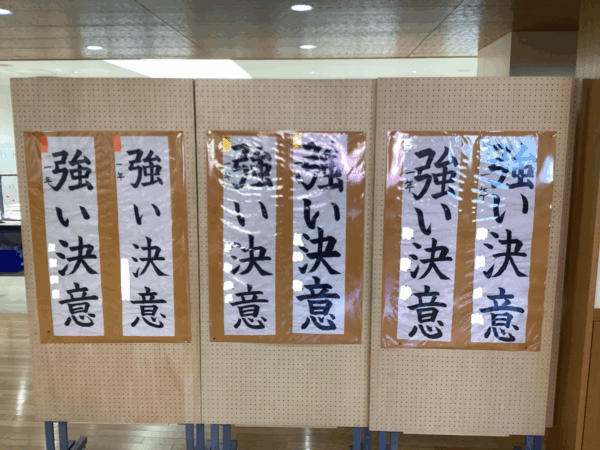 強い決意
一年
強い決意
一年
強い決意
強い決意
一年
強い決意
一年
強い決意
一年